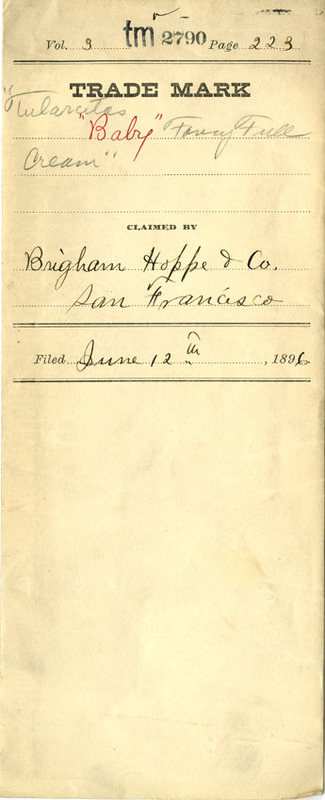 Vol. 3 tm 2790 Page 223
TRADE MARK
"Tularcitos
"Baby" Fancy Full
Cream"
CLAIMED BY
Brigham Hoppe & Co.
San Francisco
Filed June 12th, 1896